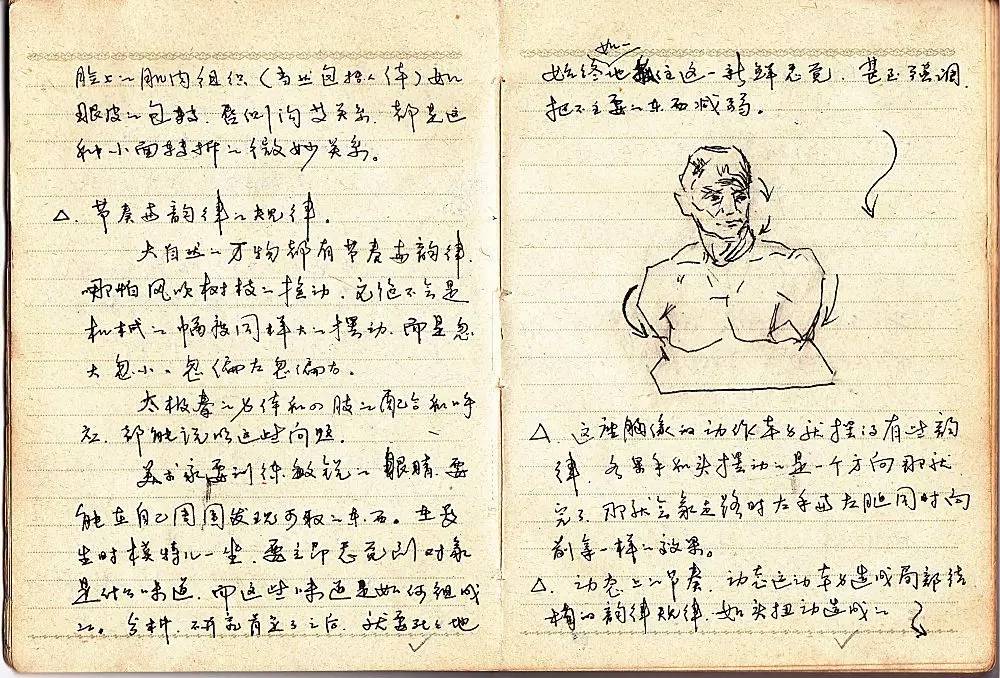 脸上的肌肉组织（当然包括人体）如
眼皮的包转、唇侧沟等关系，都是这
种小面转折的微妙关系。
△. 节奏与韵律的规律。
大自然的万物都有节奏与韵律，
哪怕风吹树枝的摇动，它绝不会是
机械的幅度同样大的摆动，而是忽
大忽小。忽偏左忽偏右。
太极拳的身体和四肢的配合和呼
应，都能说明这些问题。
美术家要训练敏锐的眼睛，要
能在自己周围发现可取的东西。在教
室时模特儿一坐，要立即感觉到对象
是什么味道，而这些味道是如何组成
的。分析、研究肯定了之后，就要死死地
如一
始终地抓住这一新鲜感觉，甚至强调，
把不主要的东西减弱。
△. 这座胸像的动作本身就摆得有些韵
律，如果手和头摆动的是一个方向那就
完了，那就会象走路时左手与左腿同时向
前拿一样的效果。
△. 动态上的节奏，动态运动本身造成局部结
构的韵律规律，如头扭动造成的